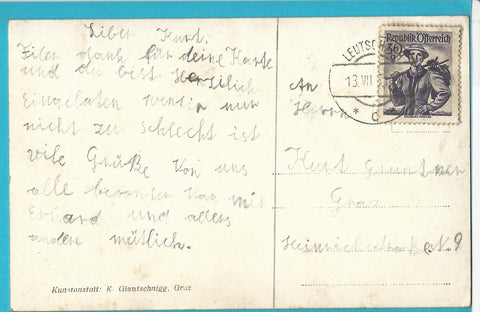 Liber Kurt.
Filen dank für deine Karte
und du bist Herzilich
Eingelaten wen in nur
nicht zu schlecht ist
vile Grüße Von uns
alle besonten Von mir
Erhard und allers
andere mütlich.
Kunstanstalt: K. Giantschnigg, Graz
Republik Österreich
30
LEUTSCH
13. VII
* c
An
Herrn
Kurt
Graz
Heinrichstraße 9